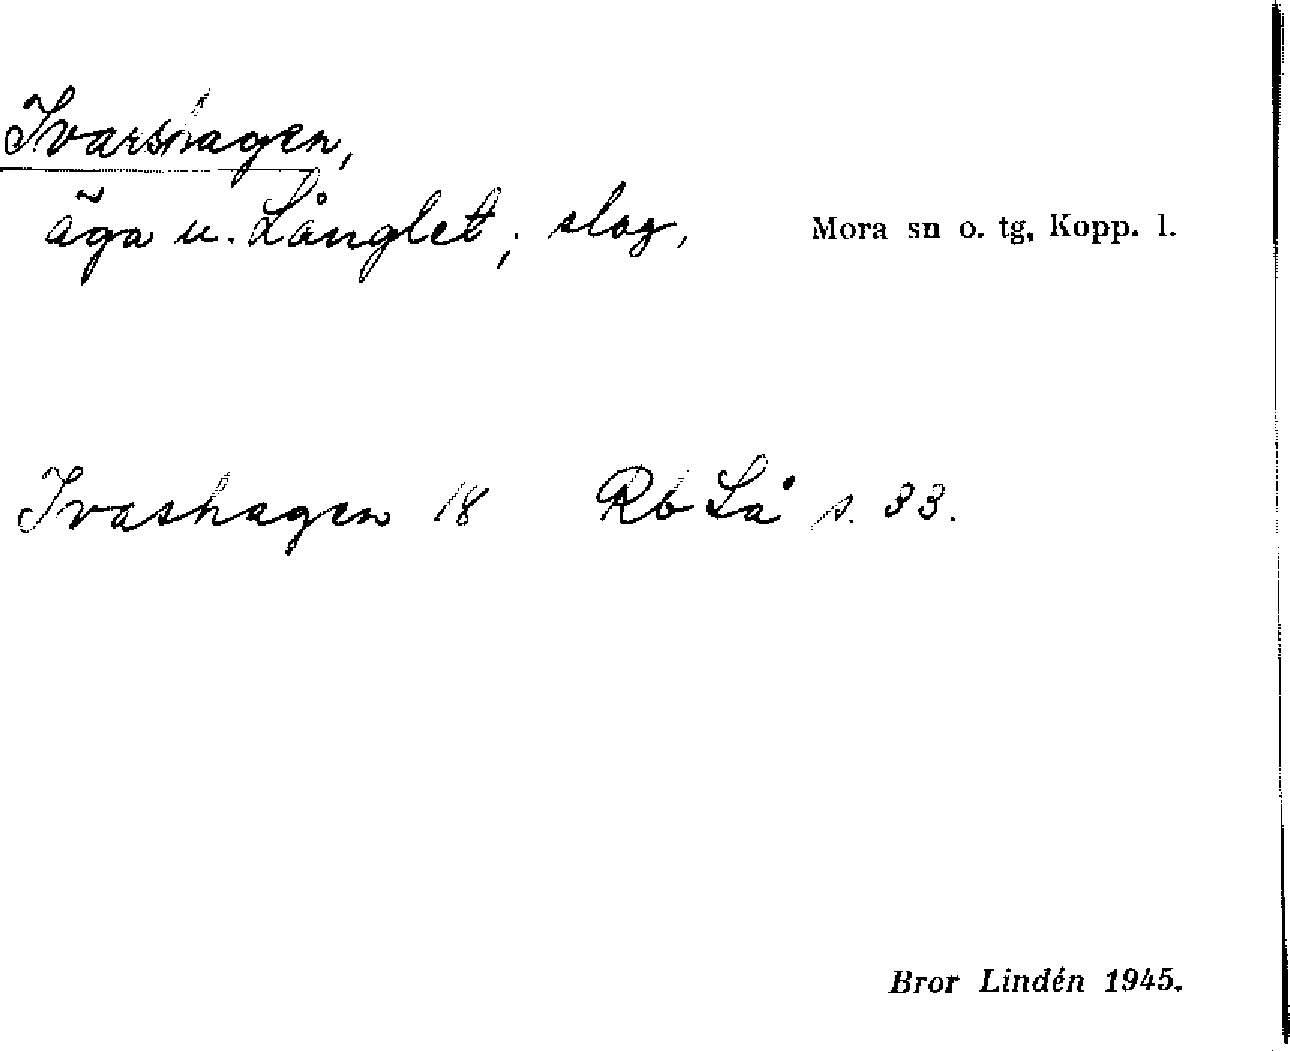 Ivarshagen,
äga u. Långlet; slog, Mora sn o. tg, Kopp. l.
Ivashagen 18 Rb Lå s. 33.
Bror Lindén 1945.